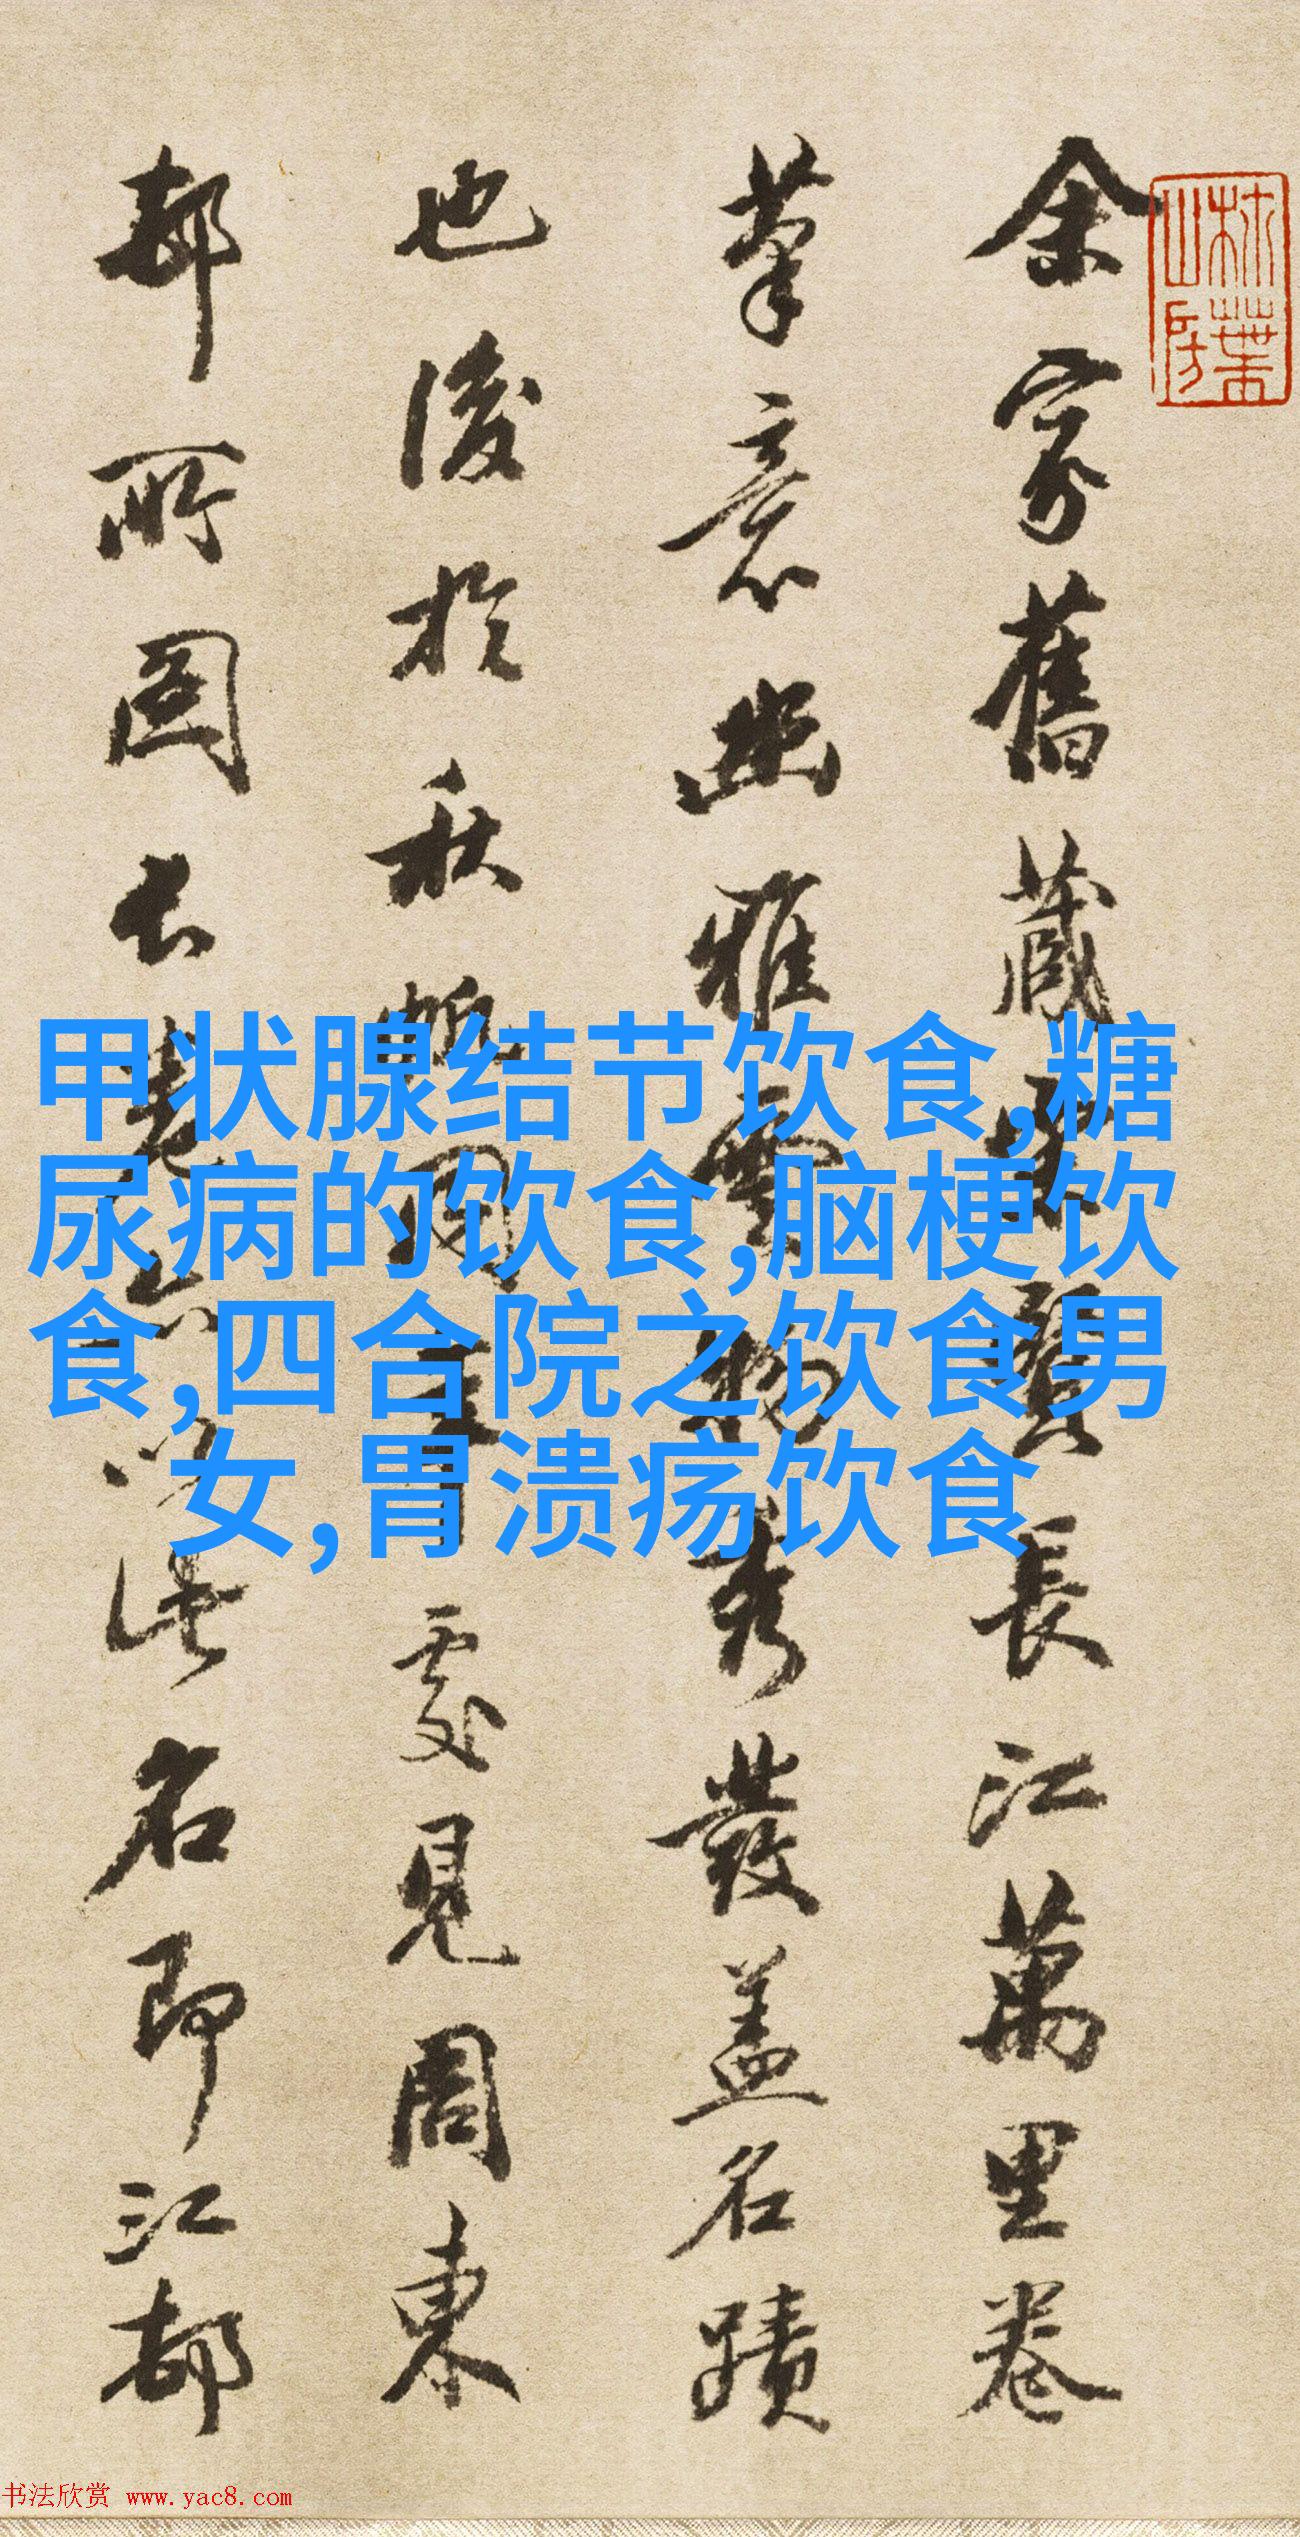 余家舊藏吳
賢長江萬里卷
筆意幽雅雲物秀發蓋名蹟
也後於秋帆
處見周東
邨所圖長卷
名即江都
甲状腺结节饮食,糖
尿病的饮食,脑梗饮
食,四合院之饮食男
女,胃溃疡饮食
书法欣赏 www.yac8.com